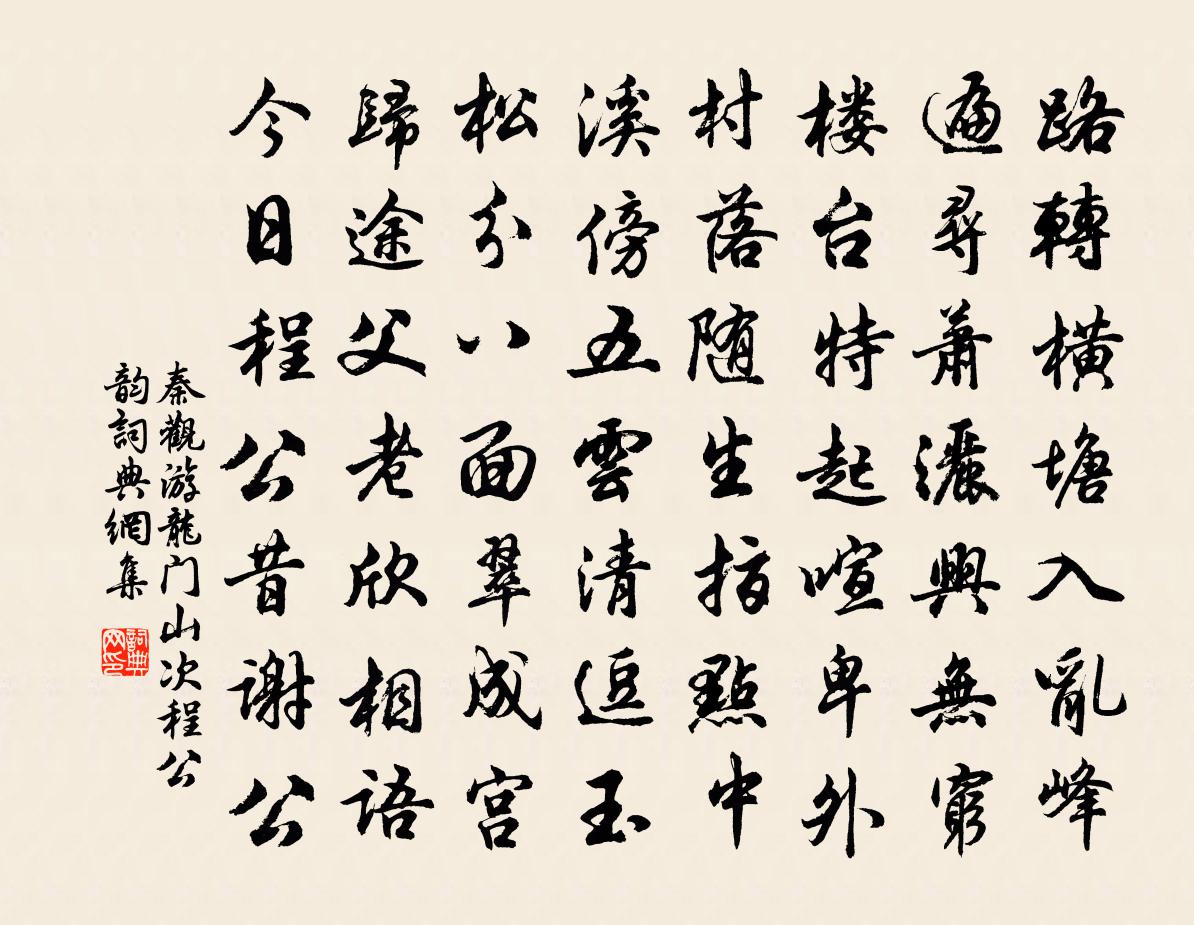 路轉橫塘入亂峰
遍尋蕭灑興無窮
楼台特起喧卑外
村落随生指點中
溪傍五雲清逗玉
松分八面翠成宫
歸途父老欣相語
今日程公昔謝公
秦觀游龍门山次程公
韵詞典網集
詞典网印